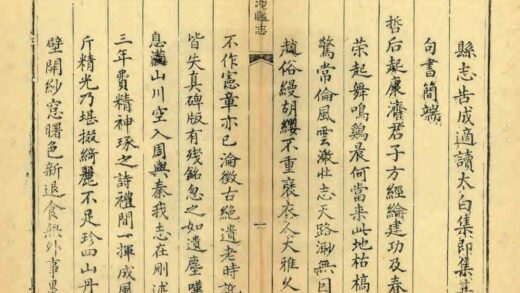 縣志告成適讀太白集即集其
句書簡端
哲后起康濟君子方經綸建功及春
荣起舞鳴鷄晨何當来此地枯槁
驚常倫風雲激壮志天路渺無因
趙俗縵胡纓不重褒衣人大雅久
涉縣志
一
不作憲章亦已淪徵古絶遺老時
皆失真碑版有殘銘忽之如遺塵嘆
息滿山川空入周與秦我志在刪述
三年費精神琢之詩禮間一揮成風
斤精光乃堪掇綺麗不足珍四山丹
壁開紗窓曙色新退食無外事